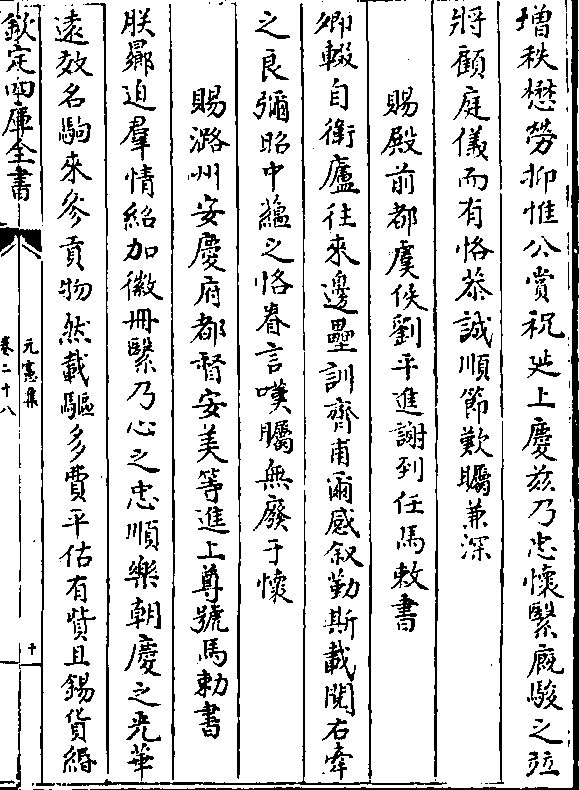 增秩懋勞抑惟公賞祝延上慶兹乃忠懷緊厩駿之竝
將顧庭儀而有恪恭誠順節歎矚兼深
賜殿前都虞候劉平進謝到任馬敕書
卿輟自衛廬往來邊壘訓齊甫爾感叙勤斯載閲右牽
之良彌昭中藴之恪眷言嘆矚無廢于懷
賜潞州安慶府都督安美等進上尊號馬勅書
朕曏迫羣情紹加徽冊繄乃心之忠順樂朝慶之光華
遠效名駒來參貢物然載驅多費平估有貲且錫貨緡
欽定四庫全書
元憲集
卷二十八
十